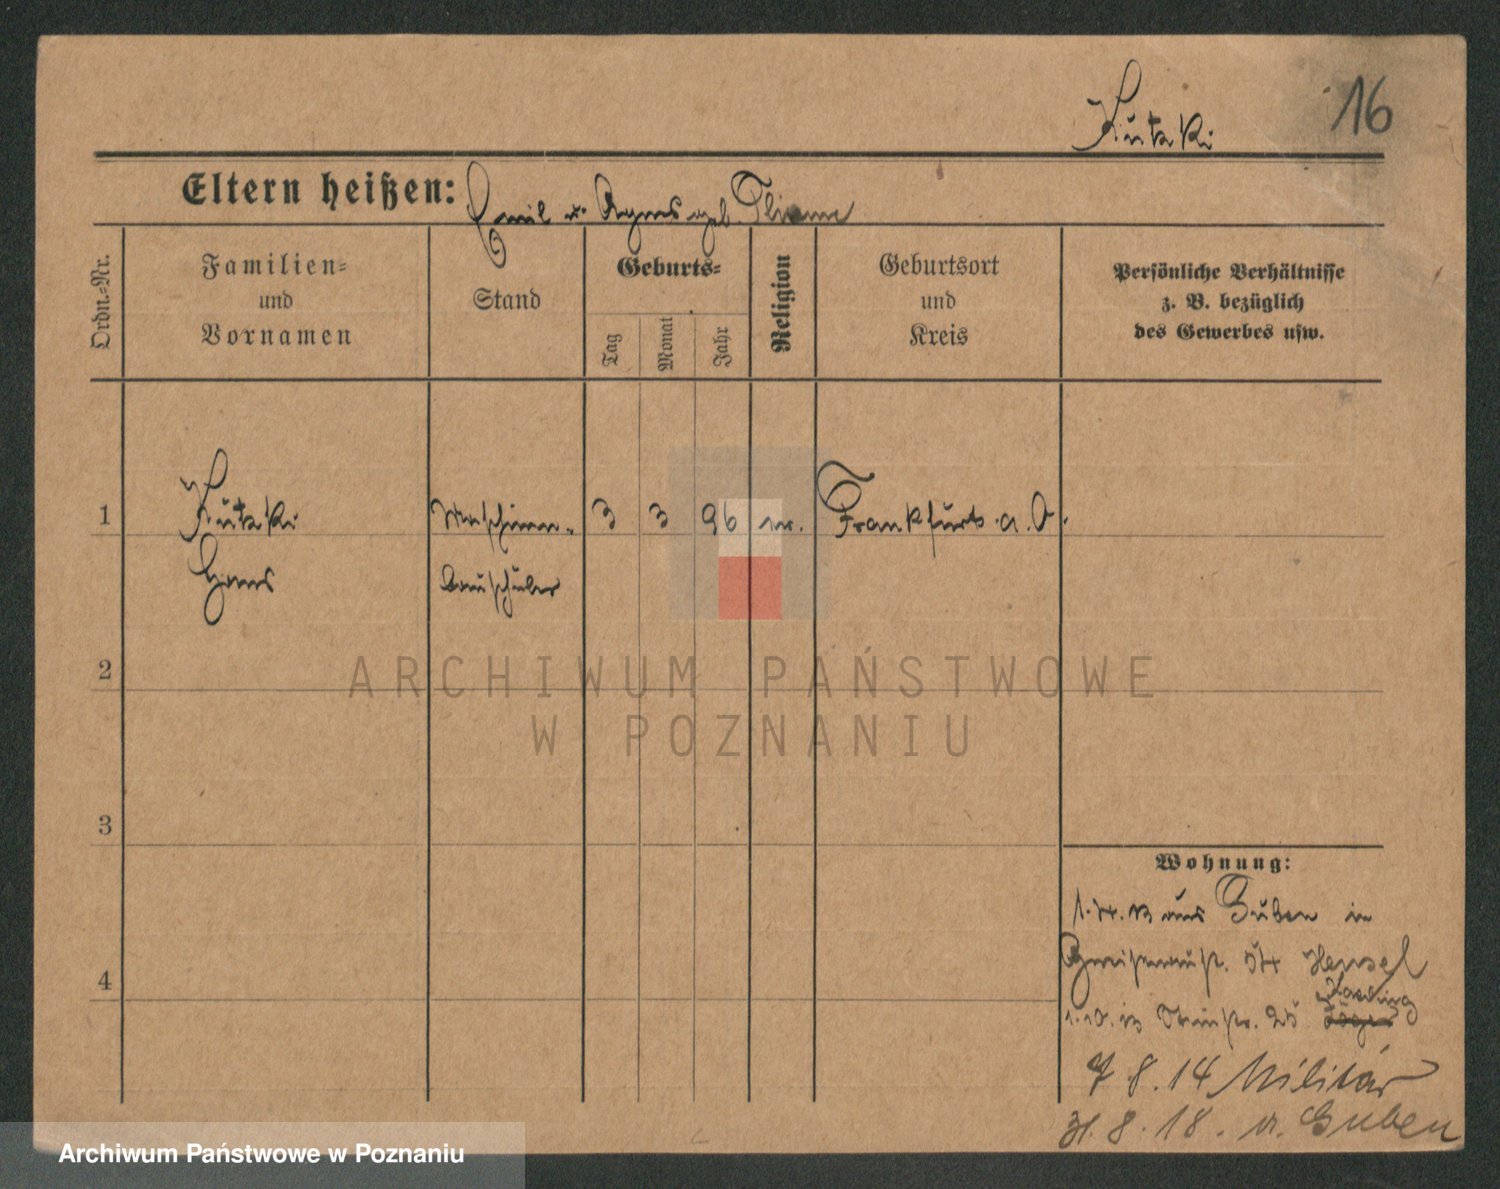 Kutzki
16
Eltern heißen: Emil u. Agnes geb.
Ordn.-Nr.
Familien-
und
Vornamen
Stand
Geburts-
Tag
Monat
Jahr
Religion
Geburtsort
und
Kreis
Persönliche Verhältnisse
z. B. bezüglich
des Gewerbes usw.
1
Kutzki
Hans
Maschinen-
bauschüler
3
3
96
ev.
Frankfurt a. O.
2
3
4
Wohnung:
1.4.13 aus Guben in
54 Hensel
1.10.13 25
7 8.14 Militär
31.8.18. n. Guben
ARCHIWUM PAŃSTWOWE
W POZNANIU
Archiwum Państwowe w Poznaniu